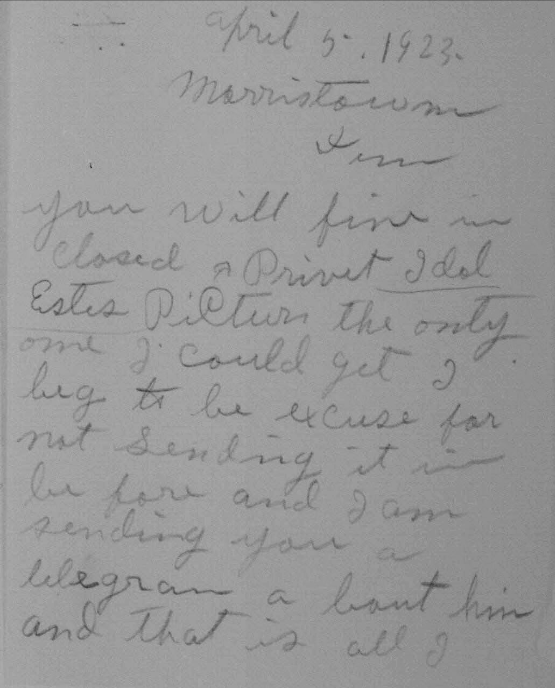 April 5. 1923.
Morristown
Tenn
you will fine in
closed a Privet Idol
Estes Picturn the only
one I could get I
beg to be excuse for
not sending it in
be fore and I am
sending you a
telegram a bout him
and that is all I